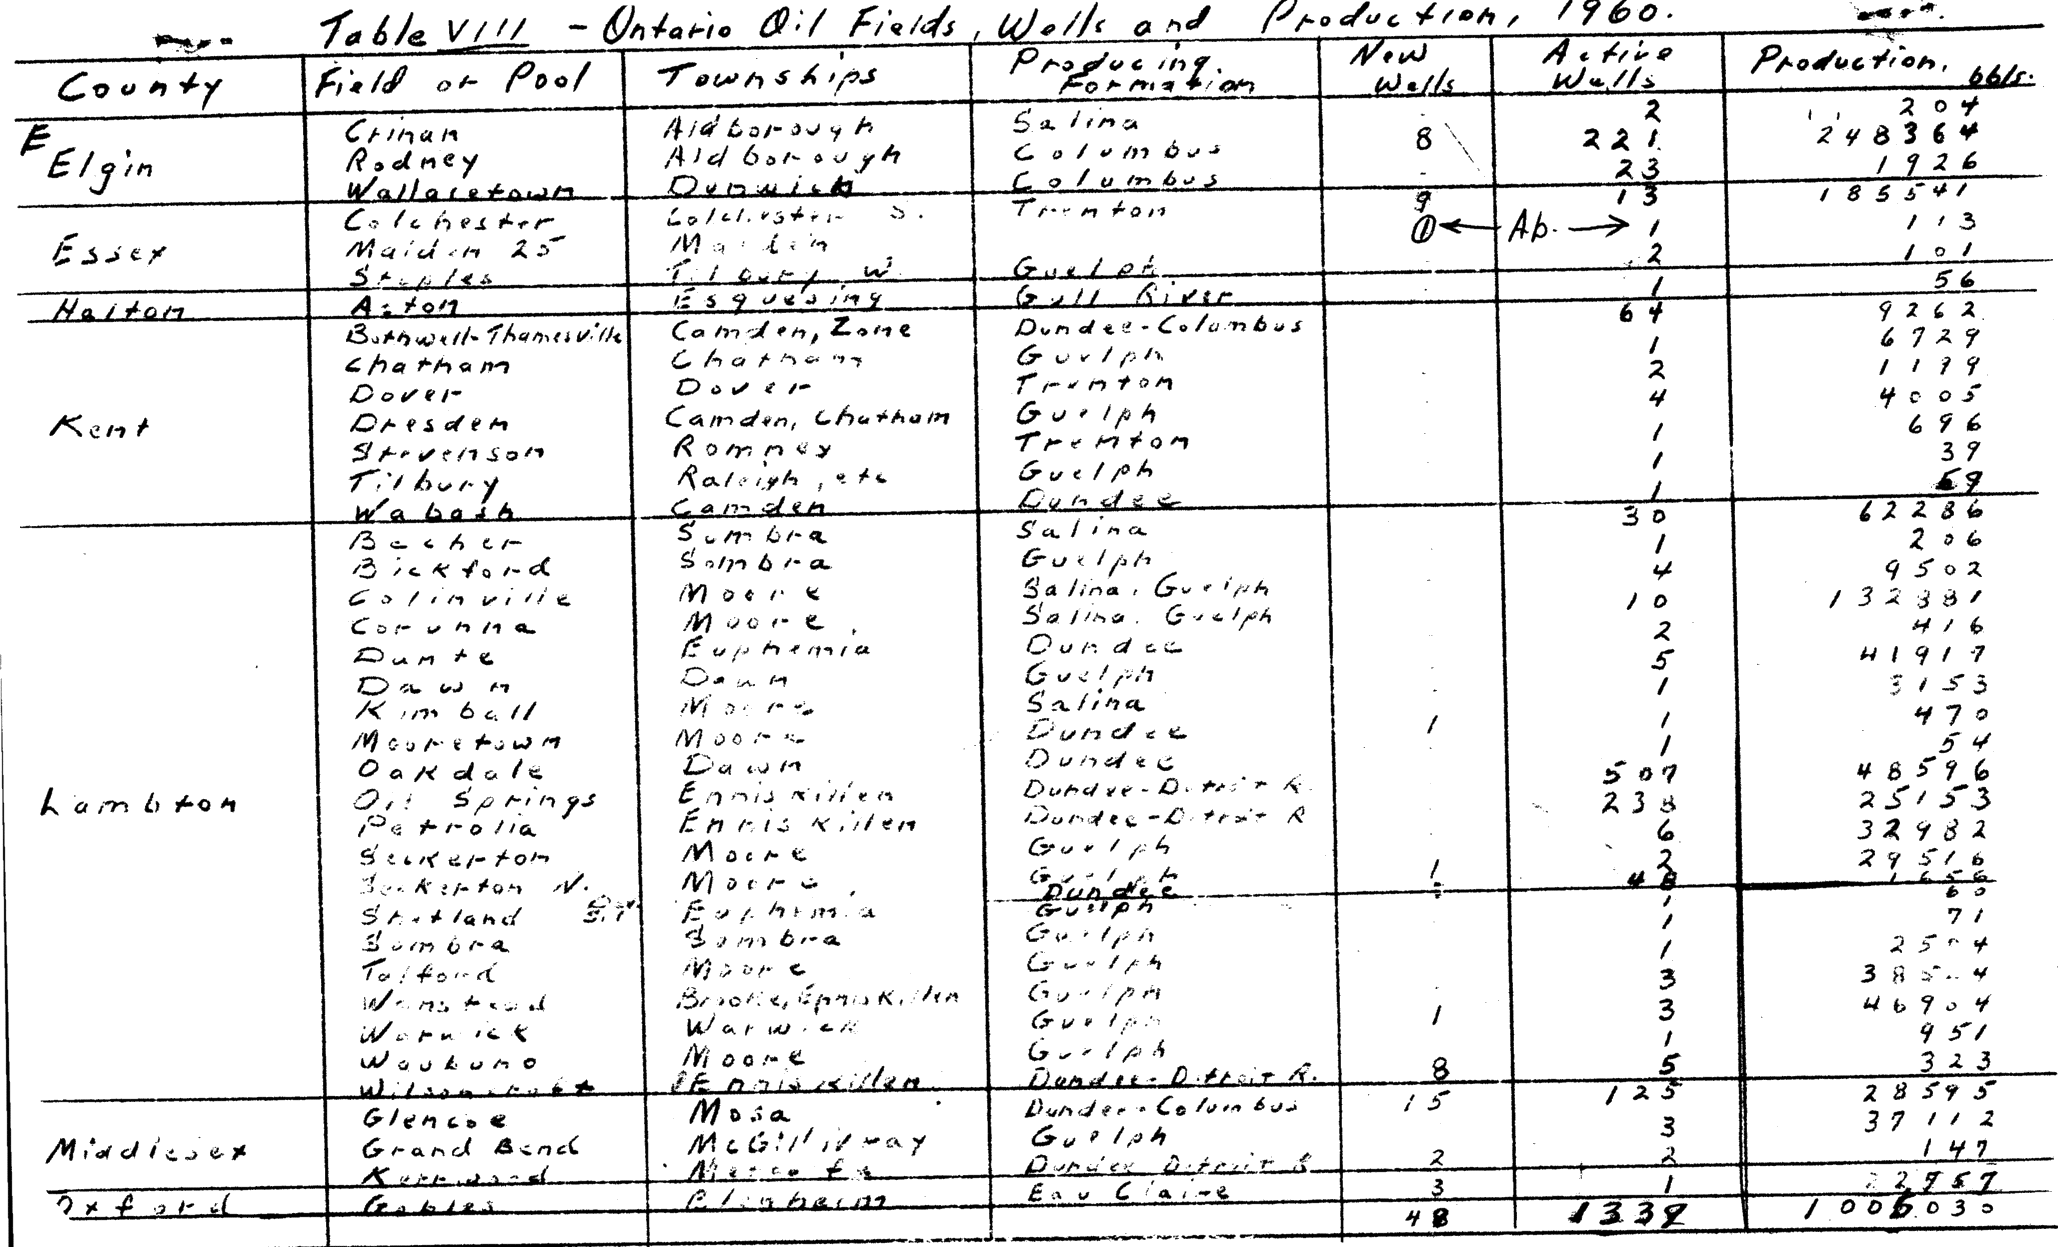 Table VIII - Ontario Oil Fields, Wells and Production, 1960.
County Field or Pool Townships Producing Formation New Wells Active Wells Production, bbls.
E
Elgin
Crinan Aldborough Salina 2 204
Rodney Aldborough Columbus 8 221 248364
Wallacetown Dunwich Columbus 23 1926
Essex
Colchester Colchester S. Trenton 9 13 185541
Malden 25 Malden 1 ← Ab. → 1 113
Staples Tilbury W. Guelph 2 101
Halton Acton Esquesing Gull River 1 56
Kent
Bothwell-Thamesville Camden, Zone Dundee-Columbus 64 9262
Chatham Chatham Guelph 1 6729
Dover Dover Trenton 2 1199
Dresden Camden, Chatham Guelph 4 4005
Stevenson Romney Trenton 1 696
Tilbury Raleigh, etc Guelph 1 39
Wabash Camden Dundee 1 59
Lambton
Becher Sombra Salina 30 62286
Bickford Sombra Guelph 1 206
Colinville Moore Salina, Guelph 4 9502
Corunna Moore Salina, Guelph 10 132881
Dante Euphemia Dundee 2 416
Dawn Dawn Guelph 5 41917
Kimball Moore Salina 1 3153
Mooretown Moore Dundee 1 1 470
Oakdale Dawn Dundee 1 54
Oil Springs Enniskillen Dundee-Detroit R. 507 48596
Petrolia Enniskillen Dundee-Detroit R 238 25153
Seckerton Moore Guelph 6 32982
Seckerton N. Moore Guelph 1 2 29516
Shetland Euphemia Dundee 1656
Sombra Sombra Guelph 1 60
Telford Moore Guelph 1 71
Wanstead Brooke, Enniskillen Guelph 1
Warwick Warwick Guelph 3
Waubuno Moore Guelph 1 3 46904
Guelph 1 951
Enniskillen Dundee-Detroit R. 8 5 323
Middlesex
Glencoe Mosa Dundee-Columbus 15 125 28595
Grand Bend McGillivray Guelph 3 37112
Kerrwood Metcalfe Dundee Detroit R 2 2 147
Oxford Gobles Blenheim Eau Claire 3 1
48 1339 1006030